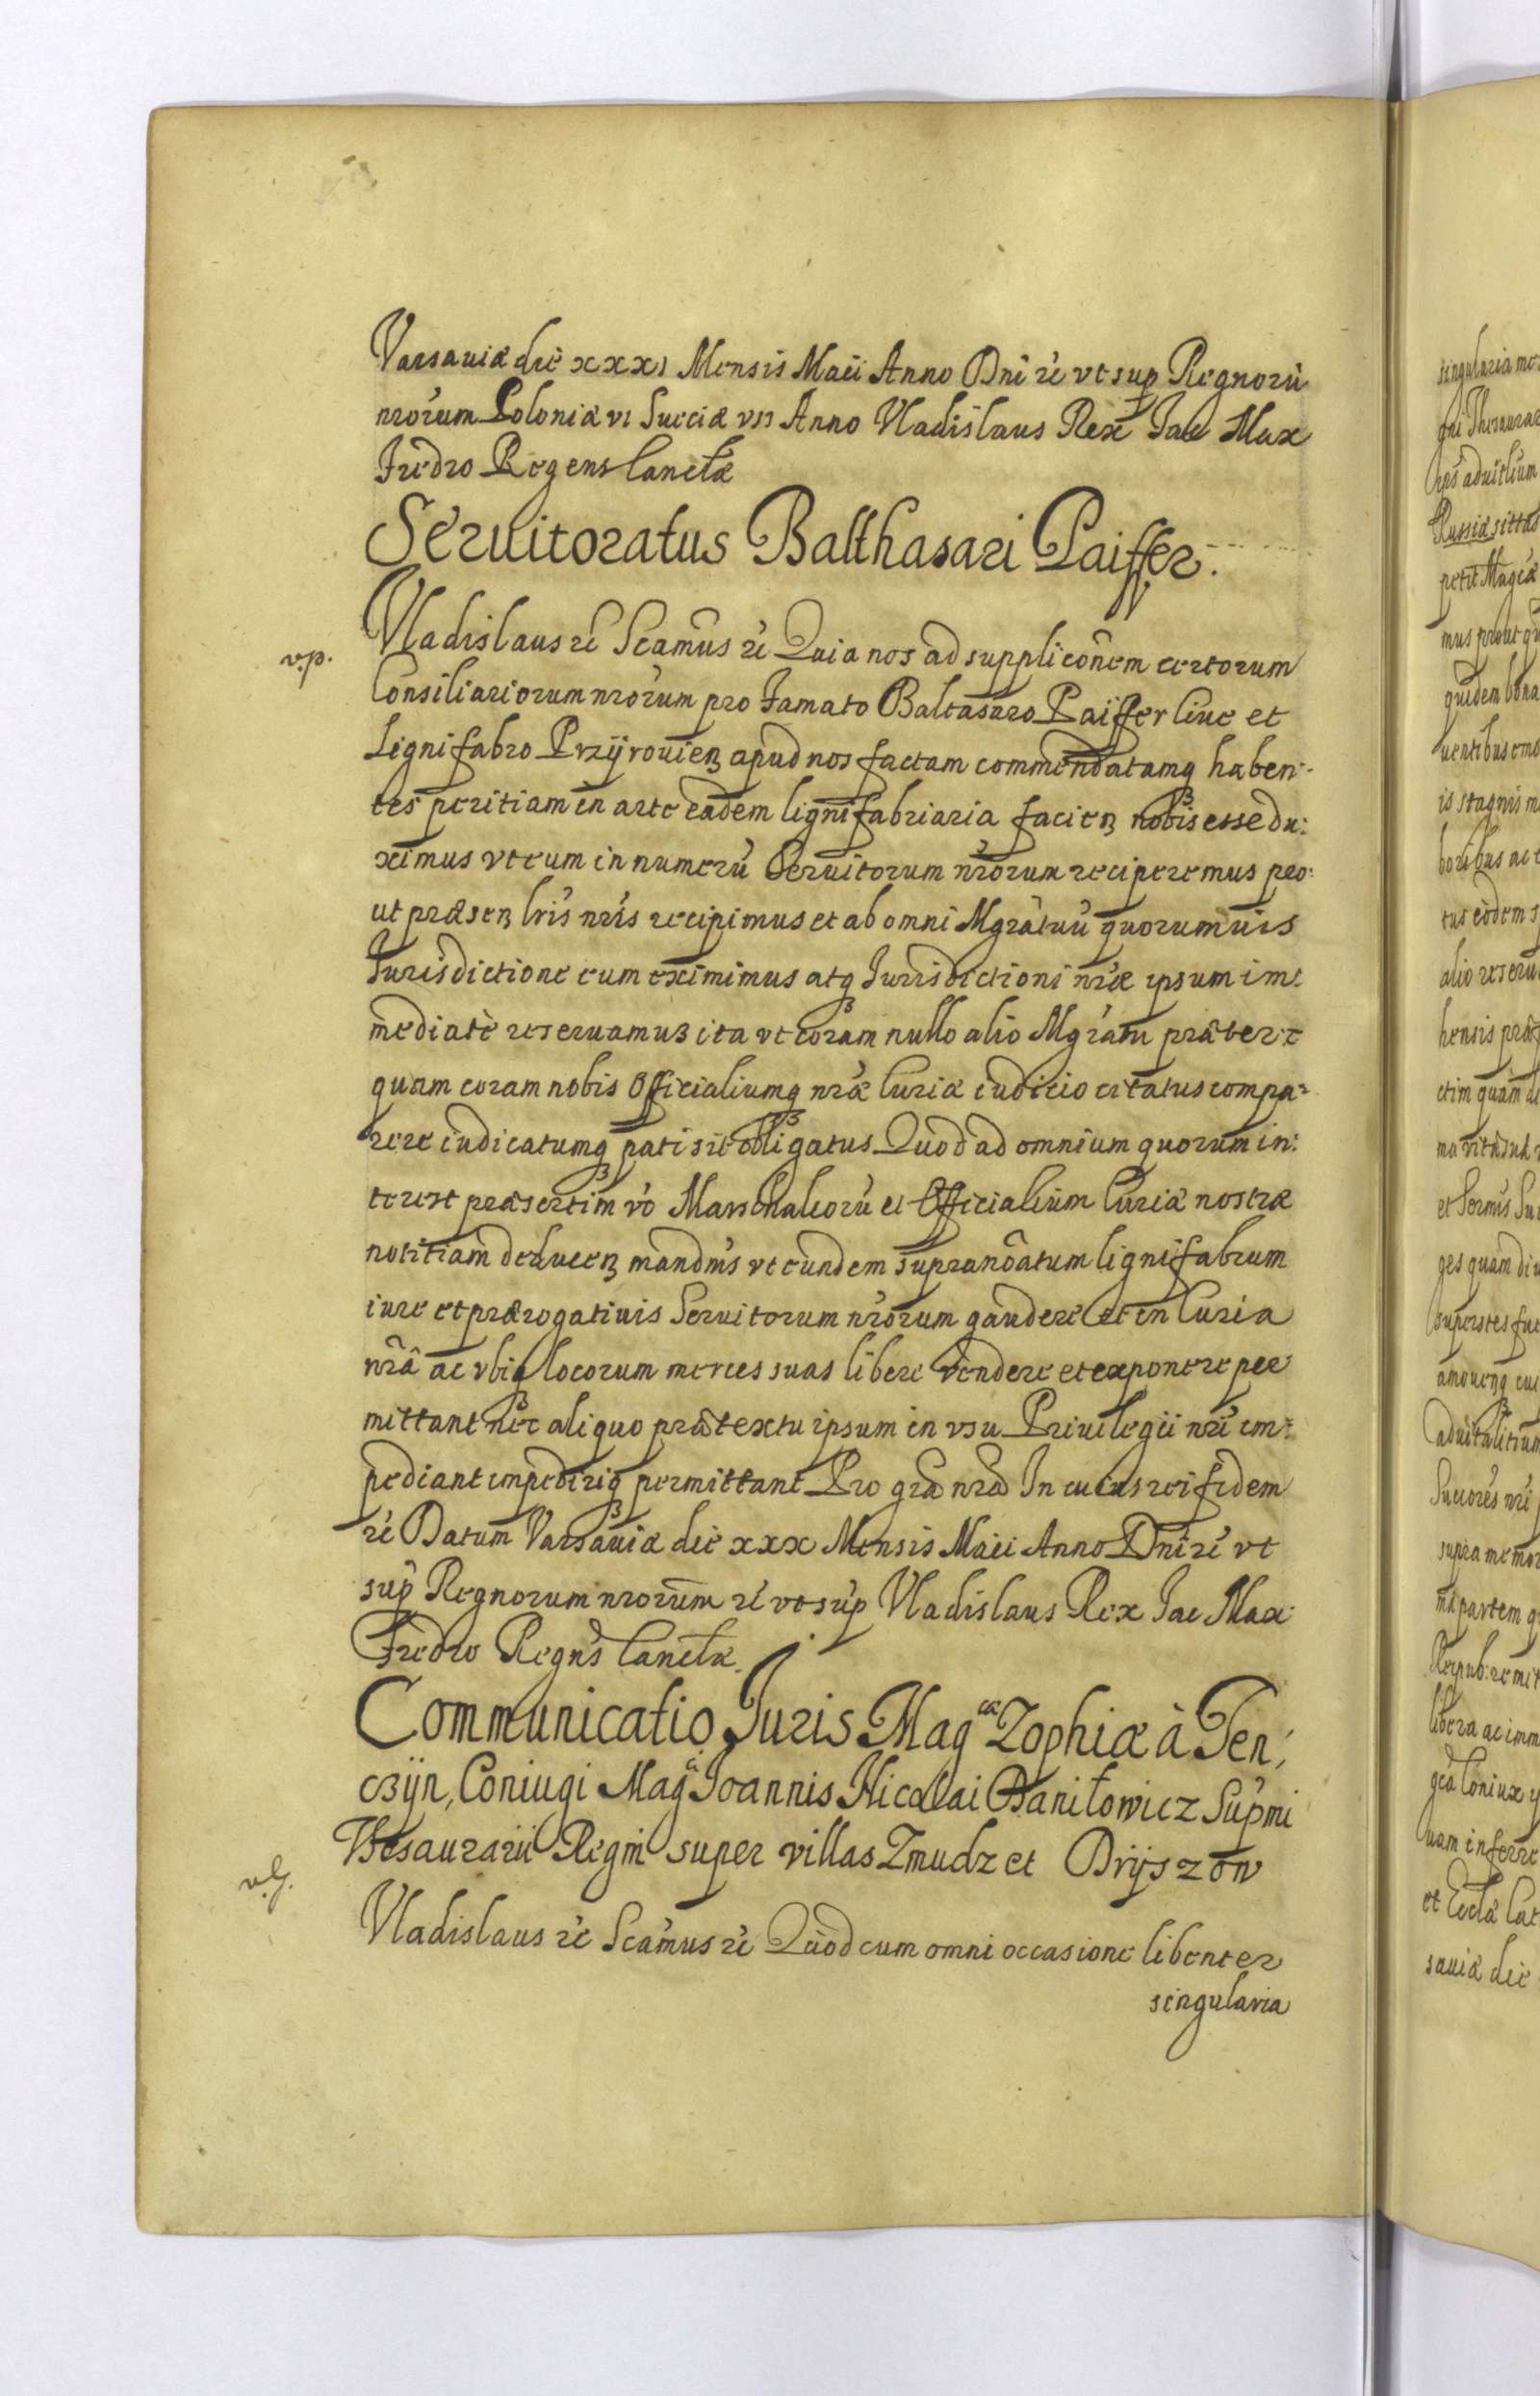 Varsauiæ die xxxi Mensis Maii Anno Dni rc vt sup Regnorū
nrorum Poloniæ vi Sueciæ vii Anno Vladislaus Rex Iac Max
Fredro Regens Canclæ
Seruitoratus Balthasari Paiffer.
v.p.
Vladislaus rc Scamus rc Quia nos ad supplicōnem certorum
Consiliariorum nrorum pro Famato Baltasaro Paiffer ciue et
Lignifabro Przyrouien apud nos factam commendatamq haben:
tes peritiam in arte eadem lignifabriaria facien nobis esse du:
ximus vt eum in numerū Seruitorum nrorum reciperemus pro:
ut præsen lris nris recipimus et ab omni Mgratuū quorumuis
Iurisdictione eum eximimus atq Iurisdictioni nræ ipsum im:
mediatè reseruamus ita vt coram nullo alio Mgratu præter:
quam coram nobis Officialiumq nræ Curiæ iudicio citatus compa:
rere iudicatumq pati sit obligatus Quod ad omnium quorum in:
terest præsertim vo Marschalcorū et Officialium Curiæ nostræ
notitiam deducen mandms vt eundem supranoatum lignifabrum
iure et prærogatiuis Seruitorum nrorum gaudere et in Curia
nrâ ac vbiq locorum merces suas libere vendere et exponere per
mittant nec aliquo prætextu ipsum in vsu Priuilegii nri im:
pediant impediriq permittant Pro gra nra In cuius rei fidem
rc Datum Varsauiæ die xxx Mensis Maii Anno Dni rc vt
sup Regnorum nrorum rc vt sup Vladislaus Rex Iac Max
Fredro Regns Canclæ.
Communicatio Iuris Magcæ Zophiæ à Ten,
czyn, Coniugi Magci Ioannis Nicolai Daniłowicz Supmi
Thesaurarii Regni super villas Zmudz et Dryszow
v.g.
Vladislaus rc Scamus rc Quod cum omni occasione libenter
singularia